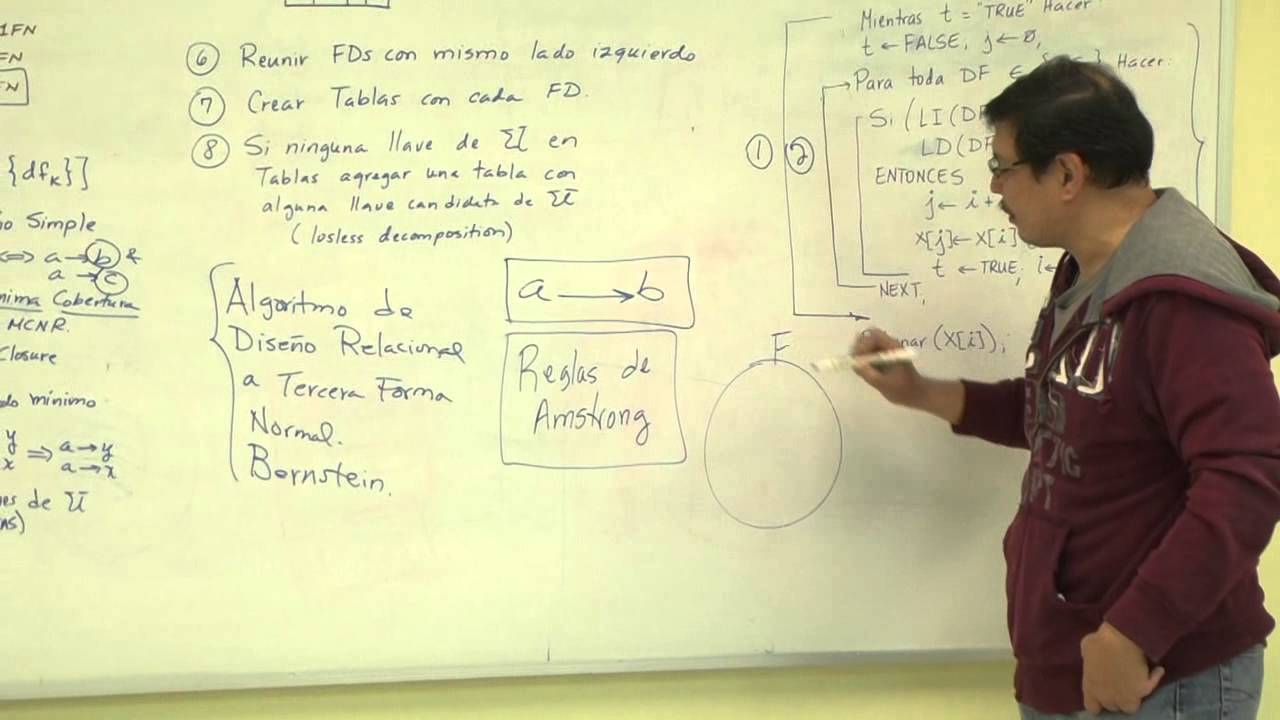 1FN
FN
FN
{df_K}]
Simple
⇔ a → b &
a → c
Cobertura
MCNR.
Closure
mínimo
y
x ⇒ a → y
a → x
de U
⑥ Reunir FDs con mismo lado izquierdo
⑦ Crear Tablas con cada FD.
⑧ Si ninguna llave de U en
Tablas agregar una tabla con
alguna llave candidata de U
(losless decomposition)
Algoritmo de
Diseño Relacional
a Tercera Forma
Normal.
Bernstein.
a → b
Reglas de
Amstrong
F
① ②
Mientras t = "TRUE" Hacer
t ← FALSE, j ← 0,
Para toda DF ∈ } Hacer:
Si (LI(DF
LD(DF
ENTONCES
j ← i +
X[j] ← X[i]
t ← TRUE; i ←
NEXT;
(X[i]);